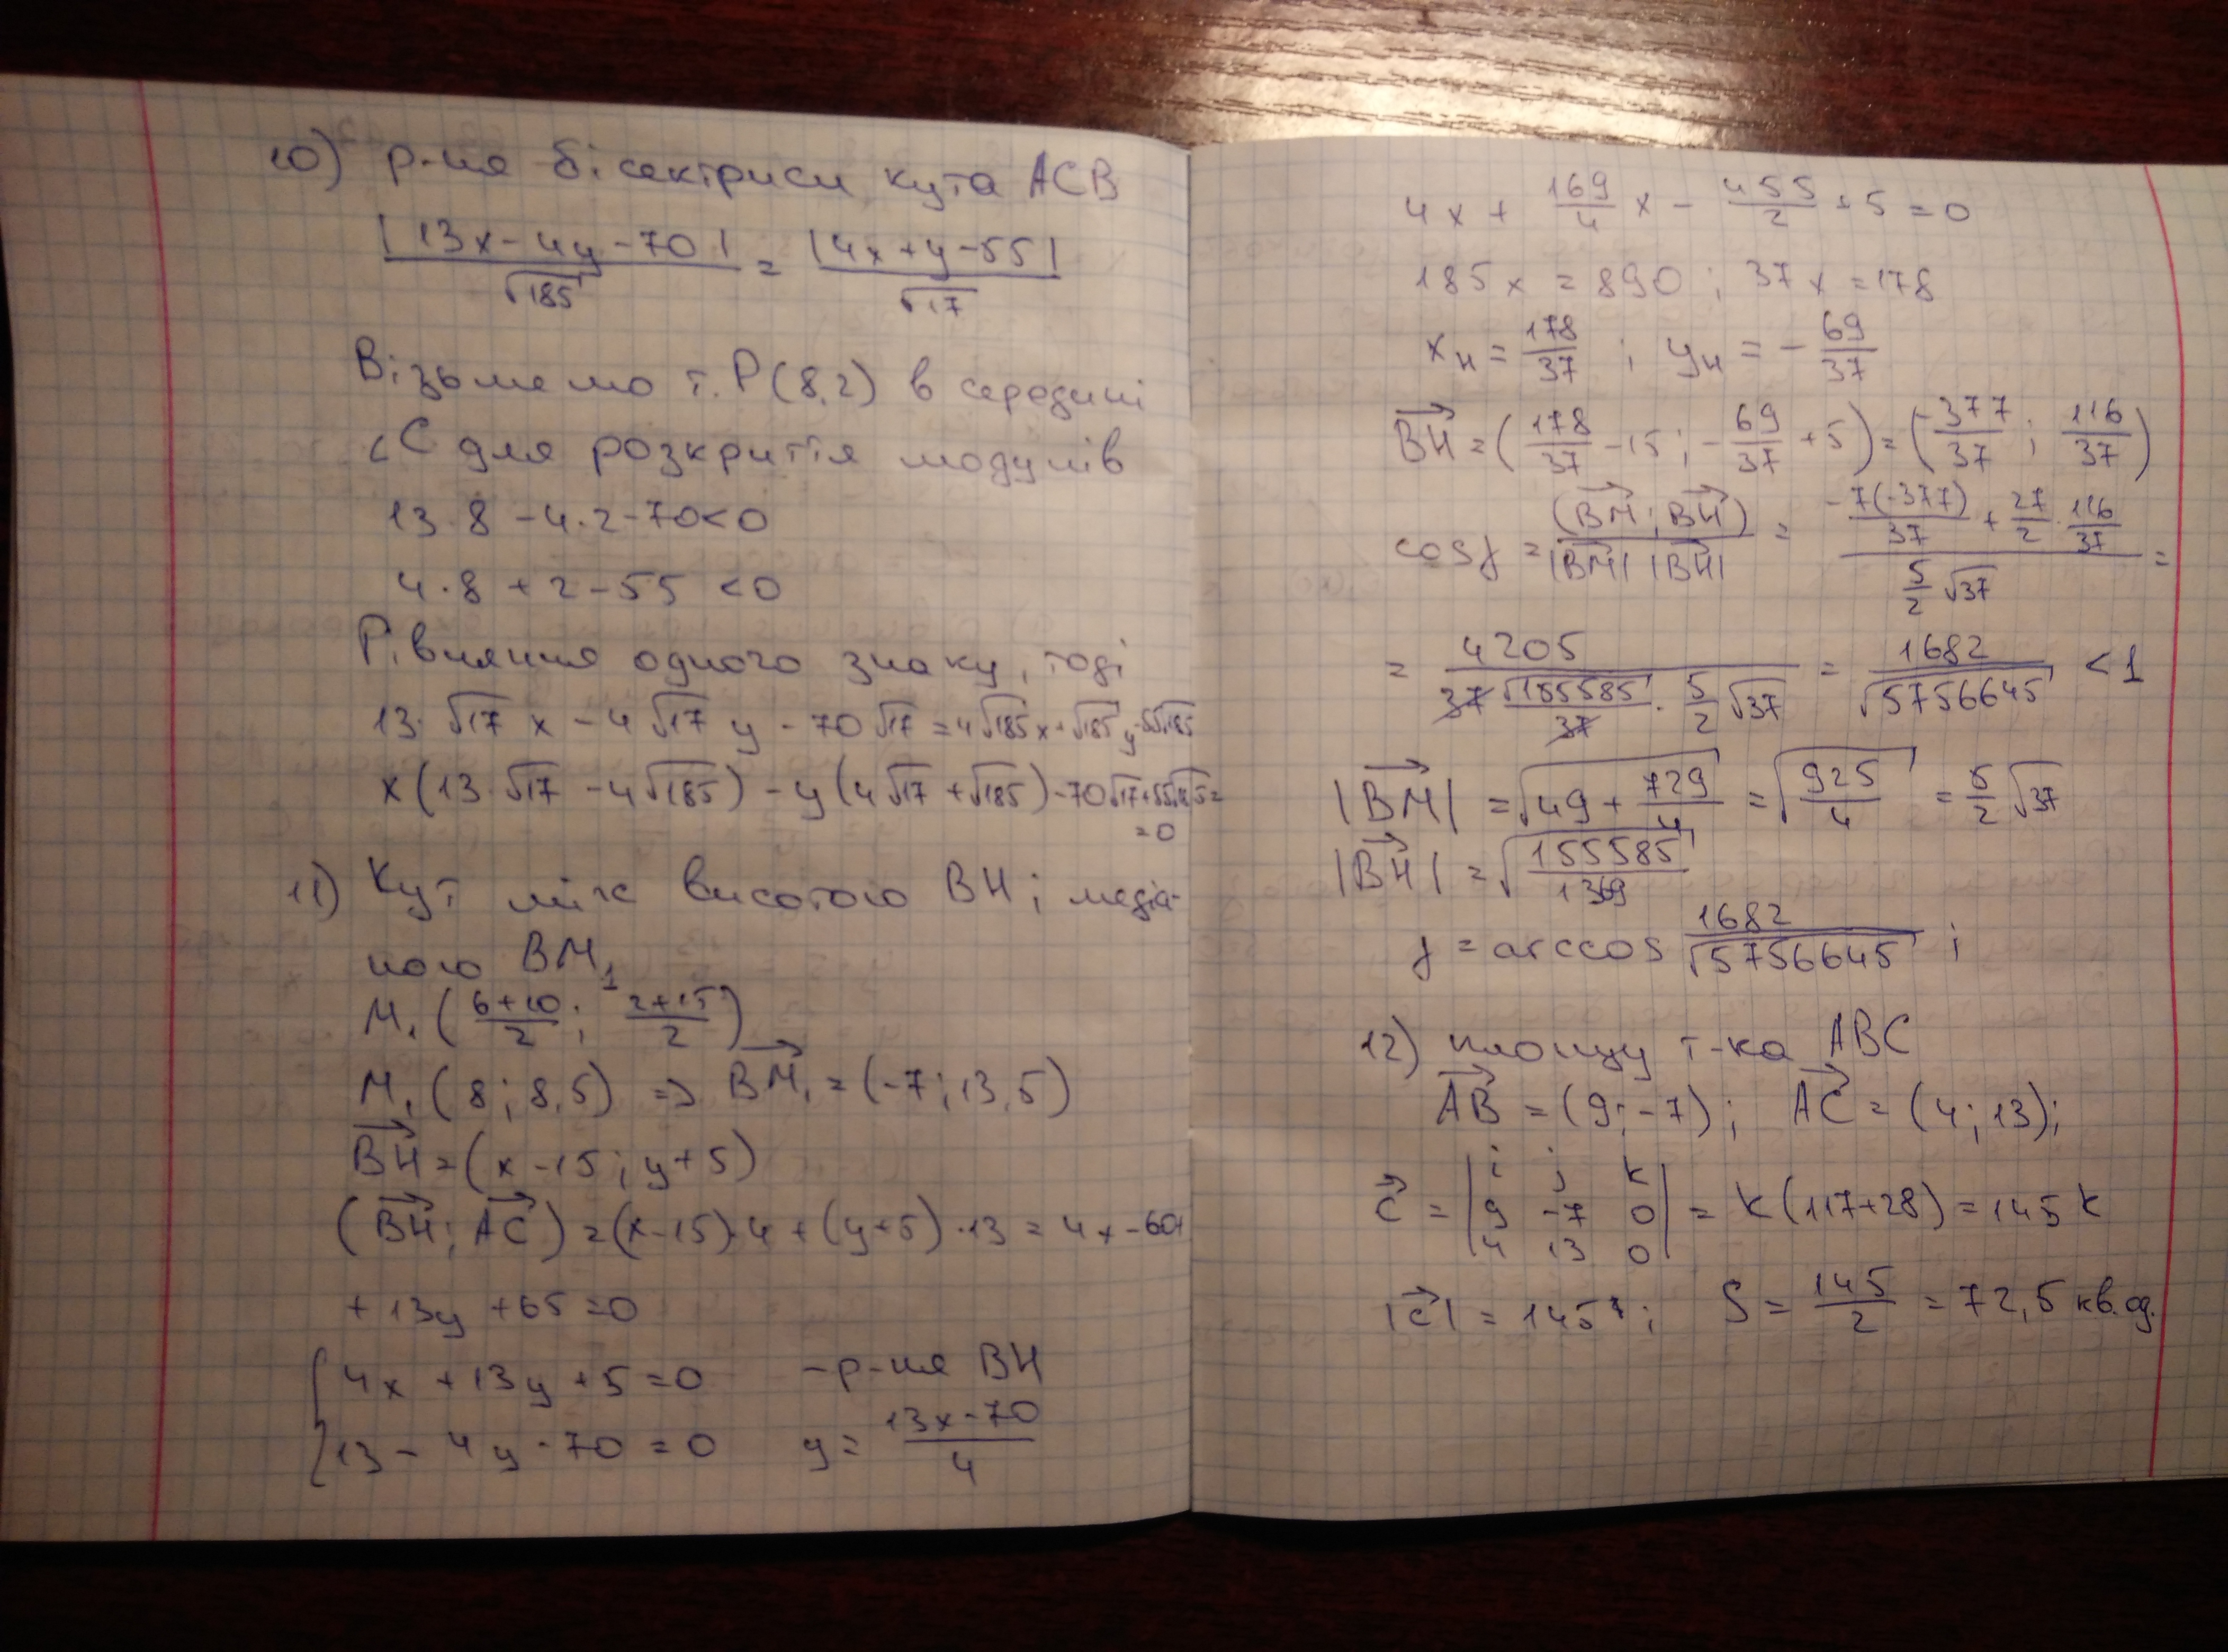 10) р-ня бісектриси кута ACB
|13x-4y-70| / √185 = |4x+y-55| / √17
Візьмемо т. P(8,2) в середині
∠C для розкриття модулів
13·8-4·2-70<0
4·8+2-55<0
Рівняння одного знаку, тоді
13·√17 x-4√17 y-70√17=4√185 x+√185 y-55√185
x(13·√17-4√185)-y(4√17+√185)-70√17+55√185=
=0
11) Кут між висотою BH і медіа-
ною BM₁
M₁(6+10 / 2; 2+15 / 2)
M₁(8; 8,5) => BM₁=(-7; 13,5)
BH=(x-15; y+5)
(BH; AC)=(x-15)·4+(y+5)·13=4x-60+
+13y+65=0
{4x+13y+5=0 -р-ня BH
{13-4y-70=0 y=13x-70 / 4
4x+169/4 x-455/2+5=0
185x=890; 37x=178
x_H=178/37; y_H=-69/37
BH=(178/37-15; -69/37+5)=(-377/37; 116/37)
cosγ=(BM; BH) / |BM| |BH| = -7(-377)/37+27/2·116/37 / 5/2 √37 =
= 4205 / 37 √155585/37 · 5/2 √37 = 1682 / √5756645 <1
|BM|=√49+729/4=√925/4=5/2 √37
|BH|=√155585/1369
γ=arccos 1682/√5756645;
12) площу т-ка ABC
AB=(9; -7); AC=(4; 13);
c = |i j k; 9 -7 0; 4 13 0| = k(117+28)=145k
|c|=145; S=145/2=72,5 кв.од.